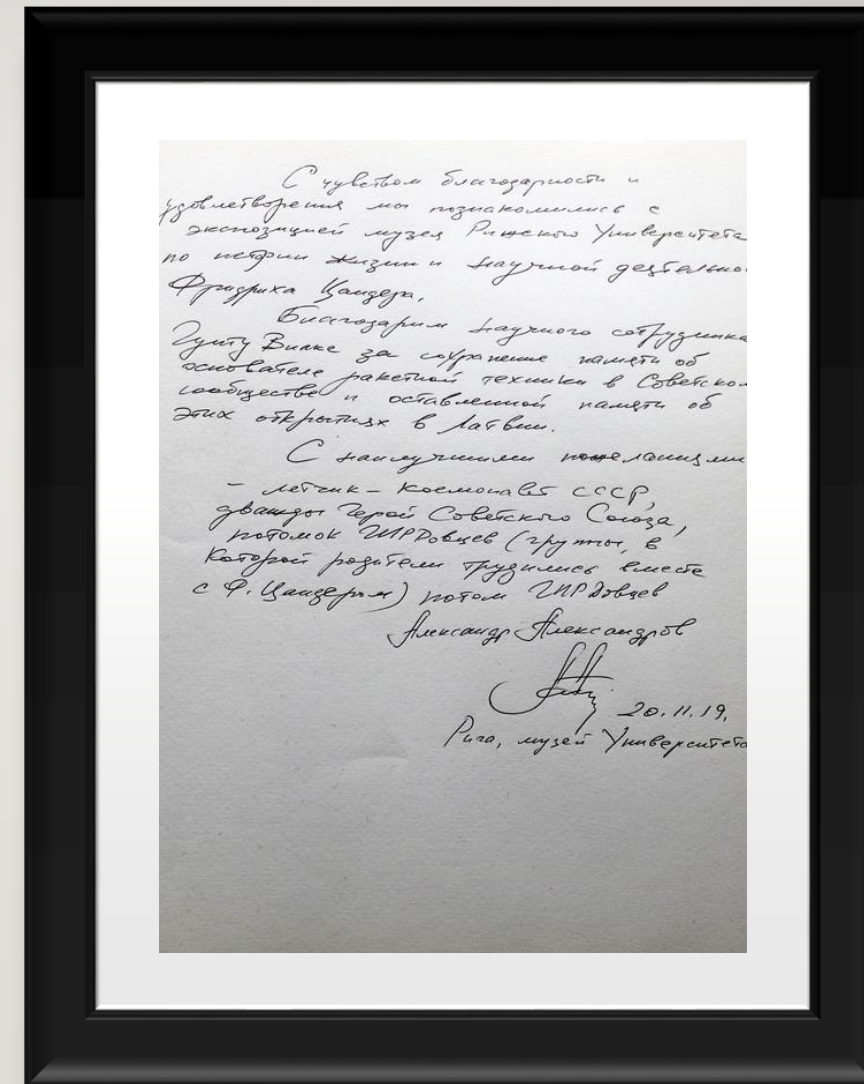 С чувством благодарности и
удовлетворения мы познакомились с
экспозицией музея Рижского Университета
по истории жизни и научной деятельно
Фридриха Цандера.
Благодарим научного сотрудника
Гунту Вилке за сохранение памяти об
основателе ракетной техники в Советском
сообществе и оставленной памяти об
этих открытиях в Латвии.
С наилучшими пожеланиями
– летчик – космонавт СССР,
дважды Герой Советского Союза,
потомок ГИРДовцев (группы, в
которой родители трудились вместе
с Ф. Цандером) потом ГИРДовцев
Александр Александров
20.11.19.
Рига, музей Университета